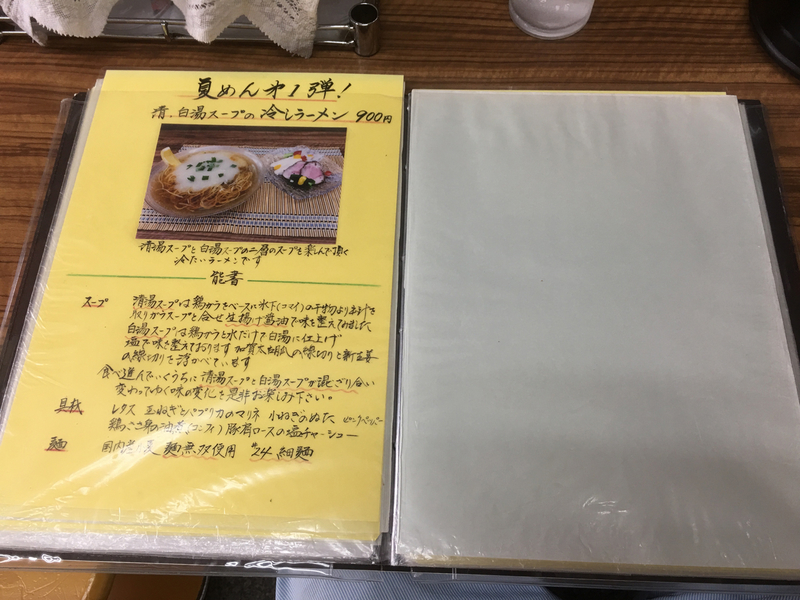 夏めん第1弾!
清・白湯スープの冷しラーメン 900円
清湯スープと白湯スープの二層のスープを楽しんで頂く
冷たいラーメンです
能書
スープ 清湯スープは鶏がらをベースに氷下(コマイ)の干物より出汁を
取りがらスープと合せ生揚げ醤油で味を整えてみました
白湯スープは鶏がらと水だけで白湯に仕上げ
塩で味を整えております 加賀太胡瓜の線切りと新生姜
の線切りを浮かべています
食べ進んでいくうちに清湯スープと白湯スープが混ざり合い
変わってゆく味の変化を是非お楽しみ下さい。
具材 レタス 玉ねぎとパプリカのマリネ 小ねぎのぬた ピンクペッパー
鶏ささ身の油煮(コンフィ) 豚肩ロースの塩チャーシュー
麺 国内産小麦 麺 無 使用 #24 細麺